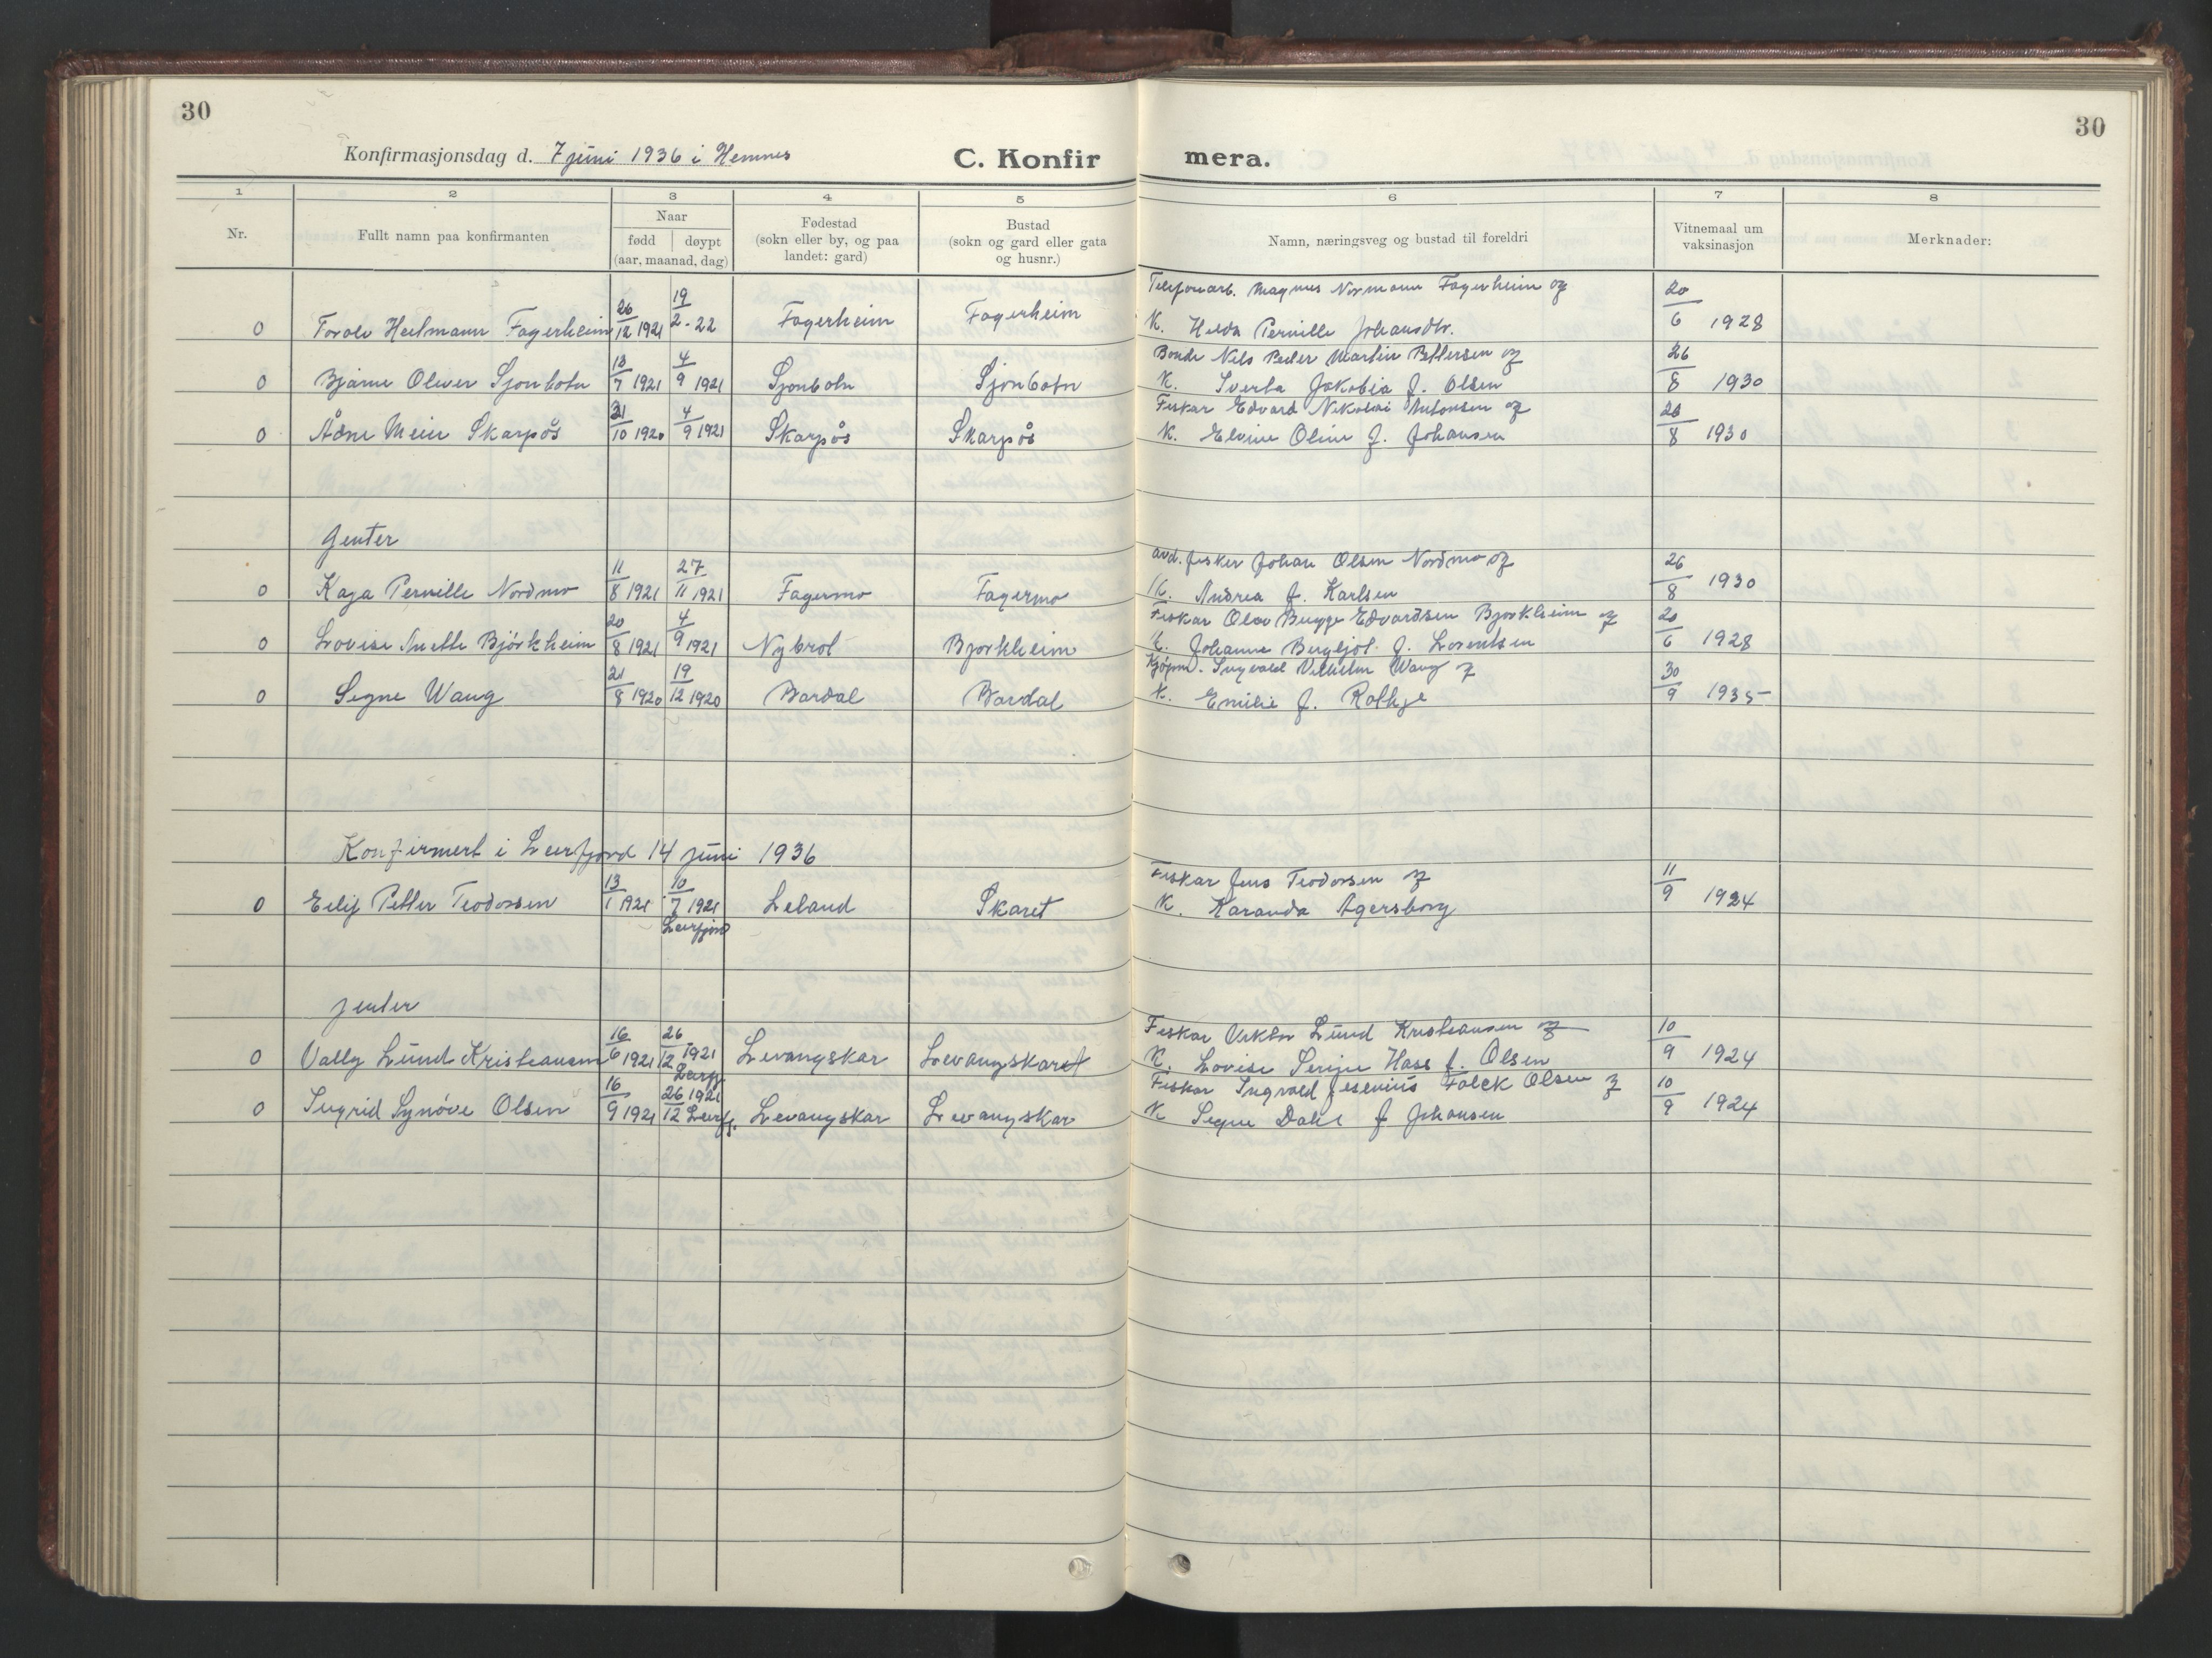 30
30
Konfirmasjonsdag d. 7 juni 1936 i Hemnes
C. Konfirmera.
1 2 3 4 5 6 7 8
Nr.
Fullt namn paa konfirmanten
Naar
fødd | døypt
(aar, maanad, dag)
Fødestad
(sokn eller by, og paa
landet: gard)
Bustad
(sokn og gard eller gata
og husnr.)
Namn, næringsveg og bustad til foreldri
Vitnemaal um
vaksinasjon
Merknader:
0 Torolv Heitmann Fagerheim 26/12 1921 19/2-22 Fagerheim Fagerheim Telefonarb. Magnus Normann Fagerheim og
K. Helda Pernille Johansdtr. 20/6 1928
0 Bjarne Oliver Sjonbotn 13/7 1921 4/9 1921 Sjonbotn Sjonbotn Bonde Nils Peder Martin Pettersen og
K. Sverta Jakobia f. Olsen 26/8 1930
0 Ådne Meier Skarpås 31/10 1920 4/9 1921 Skarpås Skarpås Fiskar Edvard Nikolai Antonsen og
K. Elvine Oline f. Johansen 26/8 1930
Genter
0 Kaja Pernille Nordmo 11/8 1921 27/11 1921 Fagermo Fagermo avd. fisker Johan Olsen Nordmo og
K. Andrea f. Karlsen 26/8 1930
0 Lovise Anette Björkheim 20/8 1921 4/9 1921 Nybrot Bjorkheim Fiskar Olav Bugge Edvardsen Bjorkheim og
K. Johanne Bergljot f. Lorentsen 20/6 1928
0 Signe Wang 21/8 1920 19/12 1920 Bardal Bardal Kjøpm. Ingvald Vilhelm Wang og
K. Emilie f. Rothje 30/9 1935
Konfirmert i Leirfjord 14 juni 1936
0 Eilif Petter Teodorsen 13/1 1921 10/7 1921 Leirfjord Leland Skaret Fiskar Jens Teodorsen og
K. Karanda Agersborg 11/9 1924
jenter
0 Vally Lund Kristiansen 16/6 1921 26/12 1921 Leirfj. Levangskar Levangskaret Fiskar Viktor Lund Kristiansen og
K. Lovise Serine Hass f. Olsen 10/9 1924
0 Ingrid Synöve Olsen 16/9 1921 26/12 1921 Leirfj. Levangskar Levangskar Fiskar Ingvald Jesenius Falck Olsen og
K Signe Dahl f Johansen 10/9 1924